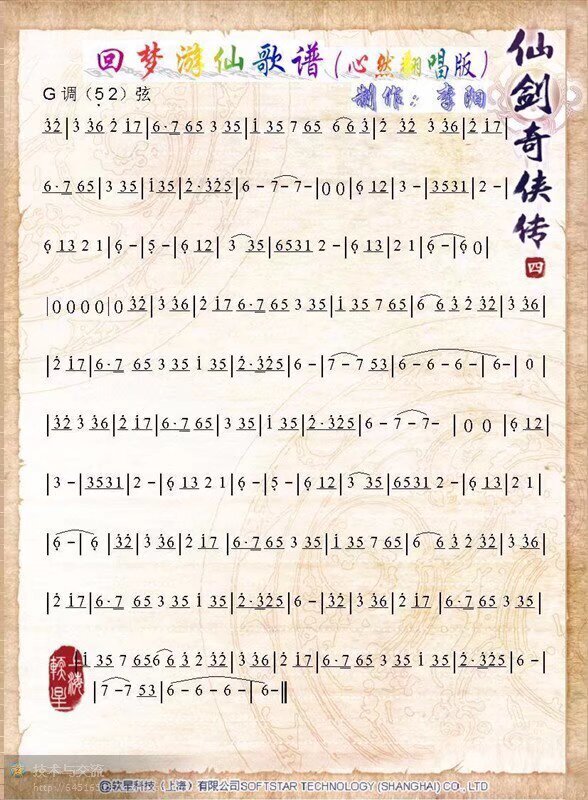 回梦游仙歌谱(心然翻唱版)
仙剑奇侠传
四
G 调 (5̣ 2) 弦
制作：李阳
3̇2̇|3̇ 3̇6̇ 2̇ 1̇7|6·7 65 3 35|1̇ 35 7 65 6 6 3̇|2̇ 3̇2̇ 3̇ 3̇6|2̇ 1̇7|
6·7 65|3 35|1̇ 35|2̇·3̇2̇5|6 - 7 - 7 -|0 0|6̣ 12|3 -|3531|2 -|
6̣ 13 2 1|6̣ -|5̣ -|6̣ 12| 3 35|6531 2 -|6̣ 13|2 1|6̣ -|6̣ 0|
|0 0 0 0 0|0 3̇2̇|3̇ 3̇6|2̇ 1̇7 6·7 65|3 35|1̇ 35 7 65|6 6 3̇ 2̇ 3̇2̇|3̇ 3̇6|
|2̇ 1̇7|6·7 65 3 35 1̇ 35|2̇·3̇2̇5|6 -|7 - 7 53|6 - 6 - 6 -|6 -|0|
|3̇2̇ 3̇ 3̇6|2̇ 1̇7|6·7 65|3 35|1̇ 35|2̇·3̇2̇5|6 - 7 - 7 -|0 0|6̣ 12|
|3 -|3531|2 -|6̣ 13 2 1|6̣ -|5̣ -|6̣ 12|3 35|6531|2 -|6̣ 13|2 1|
|6̣ -|6̣|3̇2̇|3̇ 3̇6|2̇ 1̇7|6·7 65 3 35|1̇ 35 7 65|6 6 3̇|2̇ 3̇2̇|3̇ 3̇6|
|2̇ 1̇7|6·7 65 3 35 1̇ 35|2̇·3̇2̇5|6 -|3̇2̇|3̇ 3̇6|2̇ 1̇7|6·7 65 3 35|
1̇ 35 7 656 6 3̇ 2̇ 3̇2̇|3̇ 3̇6|2̇ 1̇7|6·7 65 3 35|1̇ 35|2̇·3̇2̇5|6 -|
|7 - 7 53|6 - 6 - 6 -|6 -||
上海软星
技术与交流
©软星科技（上海）有限公司SOFTSTAR TECHNOLOGY (SHANGHAI) CO., LTD